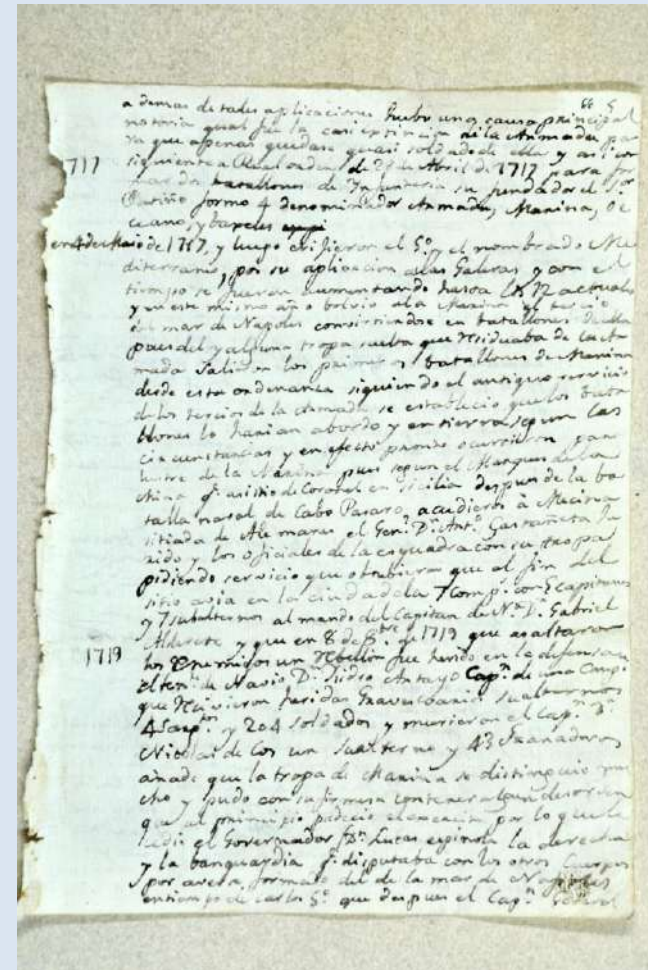 66 5
a demas de tales aplicaciones hubo una causa principal
notoria qual fue la casi extincion de la Armada, pa
ra que apenas quedase quasi soldado de ella y asi con
1717 siguiente a Real orden de de Abril de 1717 para for
mar dos batallones de Infanteria su fundador el Sor
Patiño formo 4 denominados Armada, Marina, Oc
ceano, y baxeles
en 4 de Maio de 1717, y luego erijieron el 5º y el nombrado Me
diterraneo, por su aplicacion a las Galeras y con el
tiempo se fueron aumentando hasta los 12 actuales
y en este mismo año bolvio a la Marina el tercio
del mar de Napoles convirtiendose en batallones de
pais del y alguna tropa suelta que residuaba de la Ar
mada Salieron los primeros batallones de Marina
desde esta ordenanza siguiendo el antiguo servicio
de los tercios de la Armada se establecio que los bata
llones lo harian abordo y en tierra segun las
circunstancias y en efecto pronto ocurrieron para
lustre de la Marina pues segun el Marques de la
Mina qe. asistio de Coronel en Sicilia despues de la ba
talla naval de Cabo Pasaro, acudieron à Mecina
sitiada de Alemanes el Genl. Dn. Antº. Gastañeta he
rido y los oficiales de la esquadra con su tropa
pidiendo servicio que obtubieron que al fin del
sitio avia en la ciudadela 7 Comps. con 5 capitanes
y 7 subalternos al mando del Capitan de No. Dn. Gabriel
Alderete y que en 8 de 8bre. de 1719 que asaltaron
1719 los Enemigos un Rebellin fue herido en la defensa
el tente. de Navio Dn. Isidro Antayo Capn. de una Compª.
que recivieron heridas Graves subalternos
4 Sargtos. y 204 soldados y murieron el Capn. Dn.
Nicolas de Cos un Sualterno y 43 Granaderos
añade que la tropa de Marina se distinguio mu
cho y pudo con su firmesa contener algun desorden
que al principio padecio por lo que le
cedio el Governador Dn. Lucas espinola la derecha
y la banguardia qe. disputaba con los otros Cuerpos
por averse formado del de la mar de Napoles
en tiempo de Carlos 5º. que despues el Capn. General